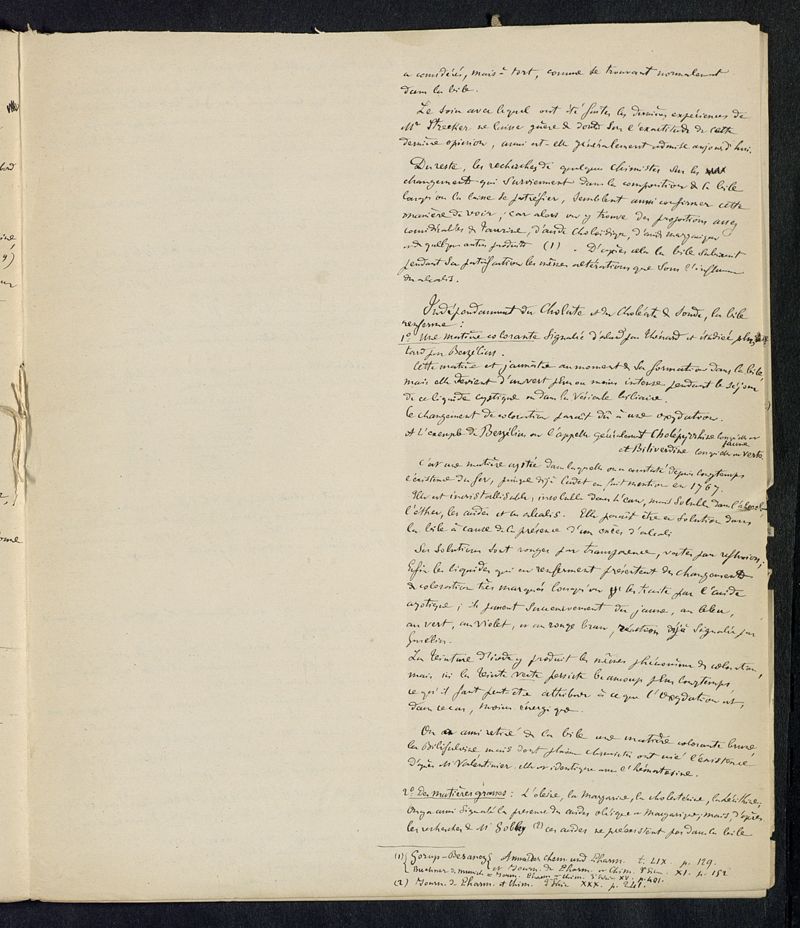 a considérés, mais à tort, comme se trouvant normalement
dans la bile.
Le soin avec lequel ont été faites les dernières expériences de
Mr Strecker ne laisse guère de doute sur l'exactitude de cette
dernière opinion, aussi est-elle généralement admise aujourd'hui.
Du reste, les recherches de quelques chimistes sur les
changements qui surviennent dans la composition de la bile
lorsqu'on la laisse se putréfier, semblent aussi confirmer cette
manière de voir, car alors on y trouve des proportions assez
considérables de Taurine, d'acide choloïdique, d'acide margarique
et de quelques autres produits (1). D'après cela la bile subirait
pendant sa putréfaction les mêmes altérations que sous l'influence
des alcalis.
Indépendamment du Cholate et du Choléate de Soude, la bile
renferme :
1º Une matière colorante signalée d'abord par Thénard et étudiée plus
tard par Berzélius.
Cette matière est jaunâtre au moment de sa formation dans la bile,
mais elle devient d'un vert plus ou moins intense pendant le séjour
de ce liquide cystique ou dans la Vésicule biliaire.
Ce changement de coloration paraît dû à une oxydation.
A l'exemple de Berzélius on l'appelle généralement Cholépyrrhine lorsqu'elle est
jaune
et Biliverdine lorsqu'elle est verte.
C'est une matière azotée dans laquelle on a constaté depuis longtemps
l'existence du fer, puisque déjà Cadet en fait mention en 1767.
Elle est incristallisable, insoluble dans l'eau, mais soluble dans l'alcool,
l'éther, les acides et les alcalis. Elle paraît être en solution dans
la bile à cause de la présence d'un excès d'alcali.
Ses solutions sont rouges par transparence, vertes par réflexion ;
Enfin les liquides qui en renferment présentent des changements
de coloration très marqués lorsqu'on les traite par l'acide
azotique ; ils passent successivement du jaune, au bleu,
au vert, au violet, et au rouge brun, réaction déjà signalée par
Gmelin.
La Teinture d'iode y produit les mêmes phénomènes de coloration,
mais ici la teinte verte persiste beaucoup plus longtemps,
ce qu'il faut peut être attribuer à ce que l'oxydation est,
dans ce cas, moins énergique.
On a aussi retiré de la bile une matière colorante brune,
la Bilifulvine, mais dont plusieurs chimistes ont nié l'existence
D'après Mr Valentinier elle est identique avec l'hématosine.
2º Des matières grasses : L'oléine, la Margarine, la cholestérine, la Lécithine,
On y a aussi signalé la présence des acides oléique et Margarique ; mais, d'après
les recherches de Mr Gobley (2) ces acides ne préexistent pas dans la bile
(1) Gorup-Besanez Annal der Chem und Pharm. t. LIX. p. 129.
et Journ. de Pharm. et Chim. 3e Série. XI. p. 152
Buchner de Munich Journ. Pharm. et Chim. 3e Série XV. p. 401.
(2) Journ. de Pharm. et Chim. 3e Série XXX. p. 241.